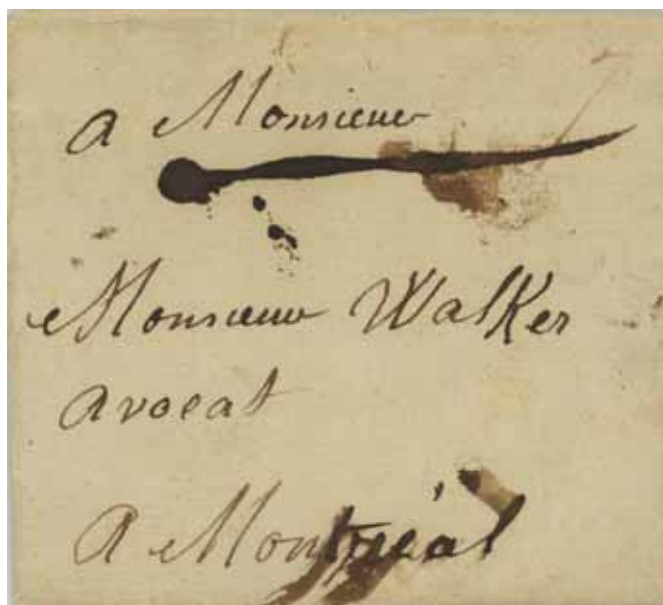 a Monsieur
Monsieur Walker
avocat
A Montréal